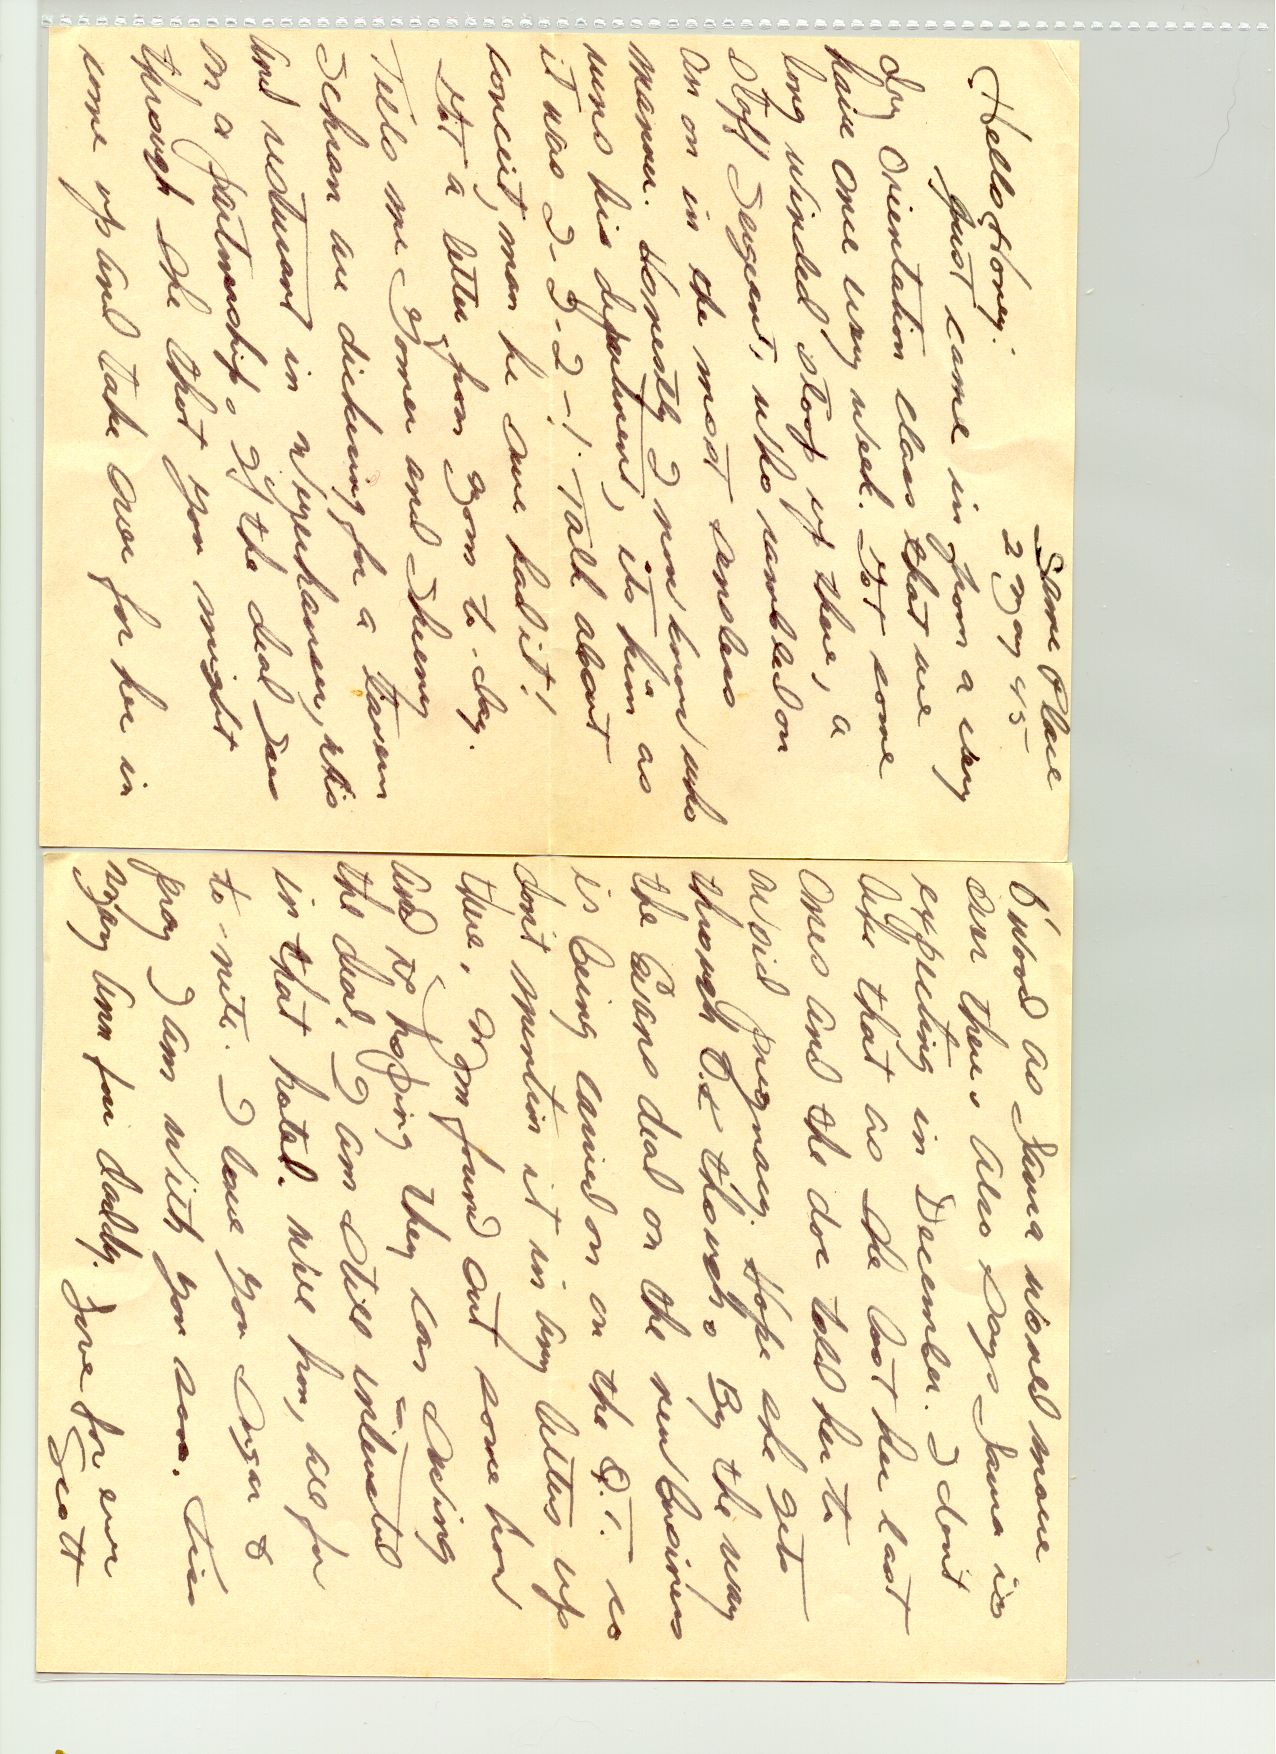 Same Place
2 May 45
Hello Honey:
Just came in from a very
dry Orientation class that we
have once every week. Got some
long winded stoop up there, a
Staff Sargent, who rambled on
an on in the most senless
manner. Honestly I now know who
runs his department, its him as
it was I-I-I-! Talk about
conceit, man he sure had it!
Got a letter from Gom to-day.
Tells me Gomer and
are dickering for a Tavern
and resturant in Wyerhauser, Wis
on a partnership. If the deal goes
through she thot you might
come up and take over for her in
B'wood as Jauna would move
over there. Also says Jauna is
expecting in December. I don't
like that as she lost her last
ones and the doc told her to
avoid pregnacy. Hope she gets
through O.K though. By the way
the Evans deal on the new business
is being carried on on the Q.T. so
dont mention it in any letters up
there. Gom found out some how
and is hoping they can swing
the deal. I am still interested
in that hotel. Will hon, all for
to-nite. I love you Sugar &
pray I am with you soon. Kiss
Mary Ann for daddy.
Love for ever
Scott